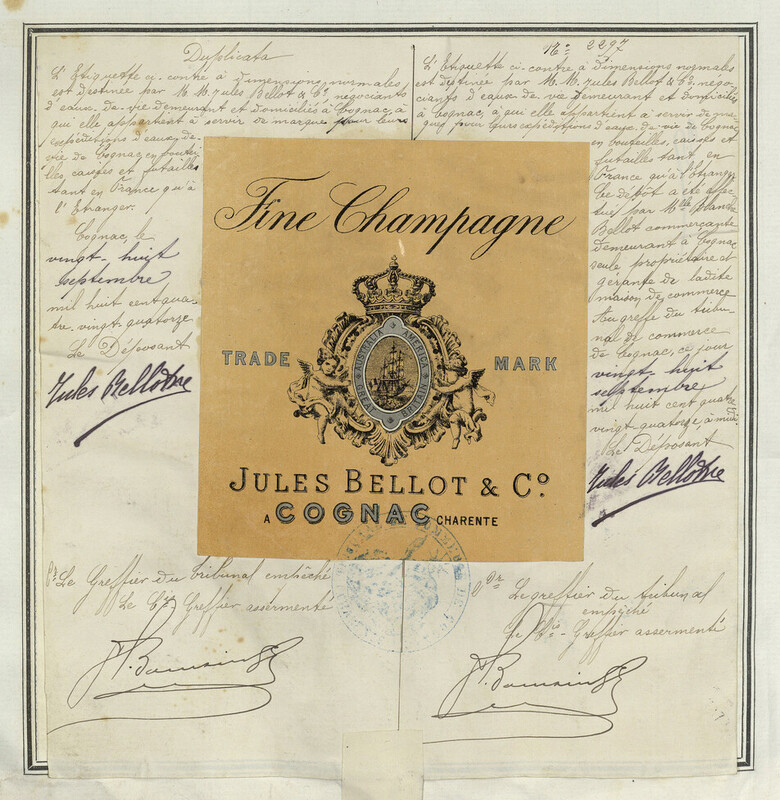 Duplicata
L'Etiquette ci-contre à dimensions normales
est destinée par M.M. Jules Bellot & Cie négociants
d'eaux-de-vie demeurant et domiciliés à Cognac, à
qui elle appartient à servir de marque pour leurs
expéditions d'eaux-de-
vie de Cognac, en boutei-
lles, caisses et futailles
tant en France qu'à
l'Etranger.
Cognac, le
vingt-huit
septembre
mil huit cent qua-
tre-vingt-quatorze
Le Déposant
Jules Bellot & Cie
No 2297
L'Etiquette ci-contre à dimensions normales
est destinée par M.M. Jules Bellot & Cie négo-
ciants d'eaux-de-vie demeurant et domiciliés
à Cognac, à qui elle appartient à servir de mar-
ques pour leurs expéditions d'eaux-de-vie de Cognac
en bouteilles, caisses et
futailles tant en
France qu'à l'étranger
Ce dépôt a été effec-
tué par Mlle Blanche
Bellot commerçante
demeurant à Cognac,
seule, propriétaire et
gérante de ladite
maison de commerce
Au greffe du tribu-
nal de commerce
de Cognac, ce jour
vingt-huit
septembre
mil huit cent quatre
vingt-quatorze, à midi.
Le Déposant
Jules Bellot & Cie
Fine Champagne
TRADE MARK
AUSTRALIA AMERICA INDIEN
JULES BELLOT & Co
A COGNAC CHARENTE
Pr Le Greffier du tribunal empêché
Le Cis Greffier assermenté
Pr Le greffier du tribunal
empêché
Le Cis-Greffier assermenté